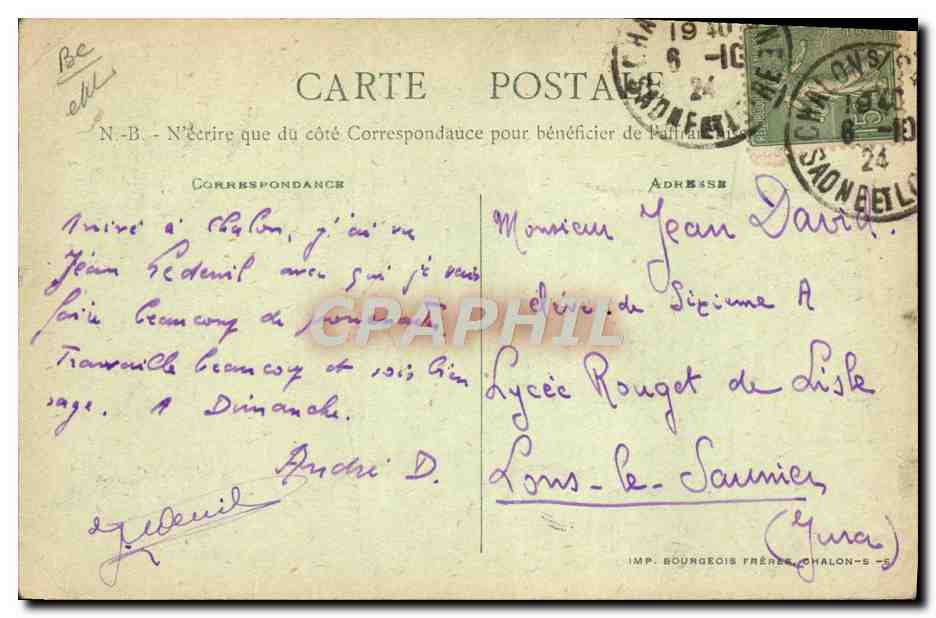 BC
CARTE POSTALE
N.-B. - N'écrire que du côté Correspondance pour bénéficier de l'affranchis
CORRESPONDANCE
Arrivé à Chalon, j'ai vu
Jean Ledeuil avec qui je vais
faire beaucoup de
Travaille beaucoup et sois bien
sage. A Dimanche.
André D.
JLedeuil
ADRESSE
Monsieur Jean David.
élève de Sixieme A
Lycée Rouget de Lisle
Lons-le-Saunier
(Jura)
IMP. BOURGEOIS FRÈRES, CHALON-S-S
CHALON S/
19 40
6 -10
24
SAONE ET LOIRE
CHALON S/S
19 40
6 -10
24
SAONE ET LO
15
CPAPHIL